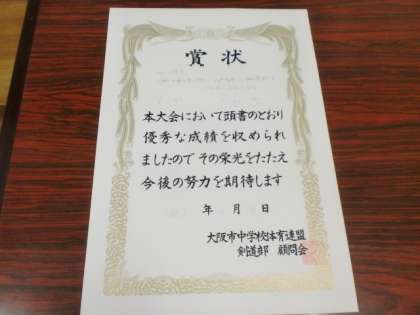 賞状
本大会において頭書のとおり
優秀な成績を収められ
ましたので その栄光をたたえ
今後の努力を期待します
年 月 日
大阪市中学校体育連盟
剣道部 顧問会